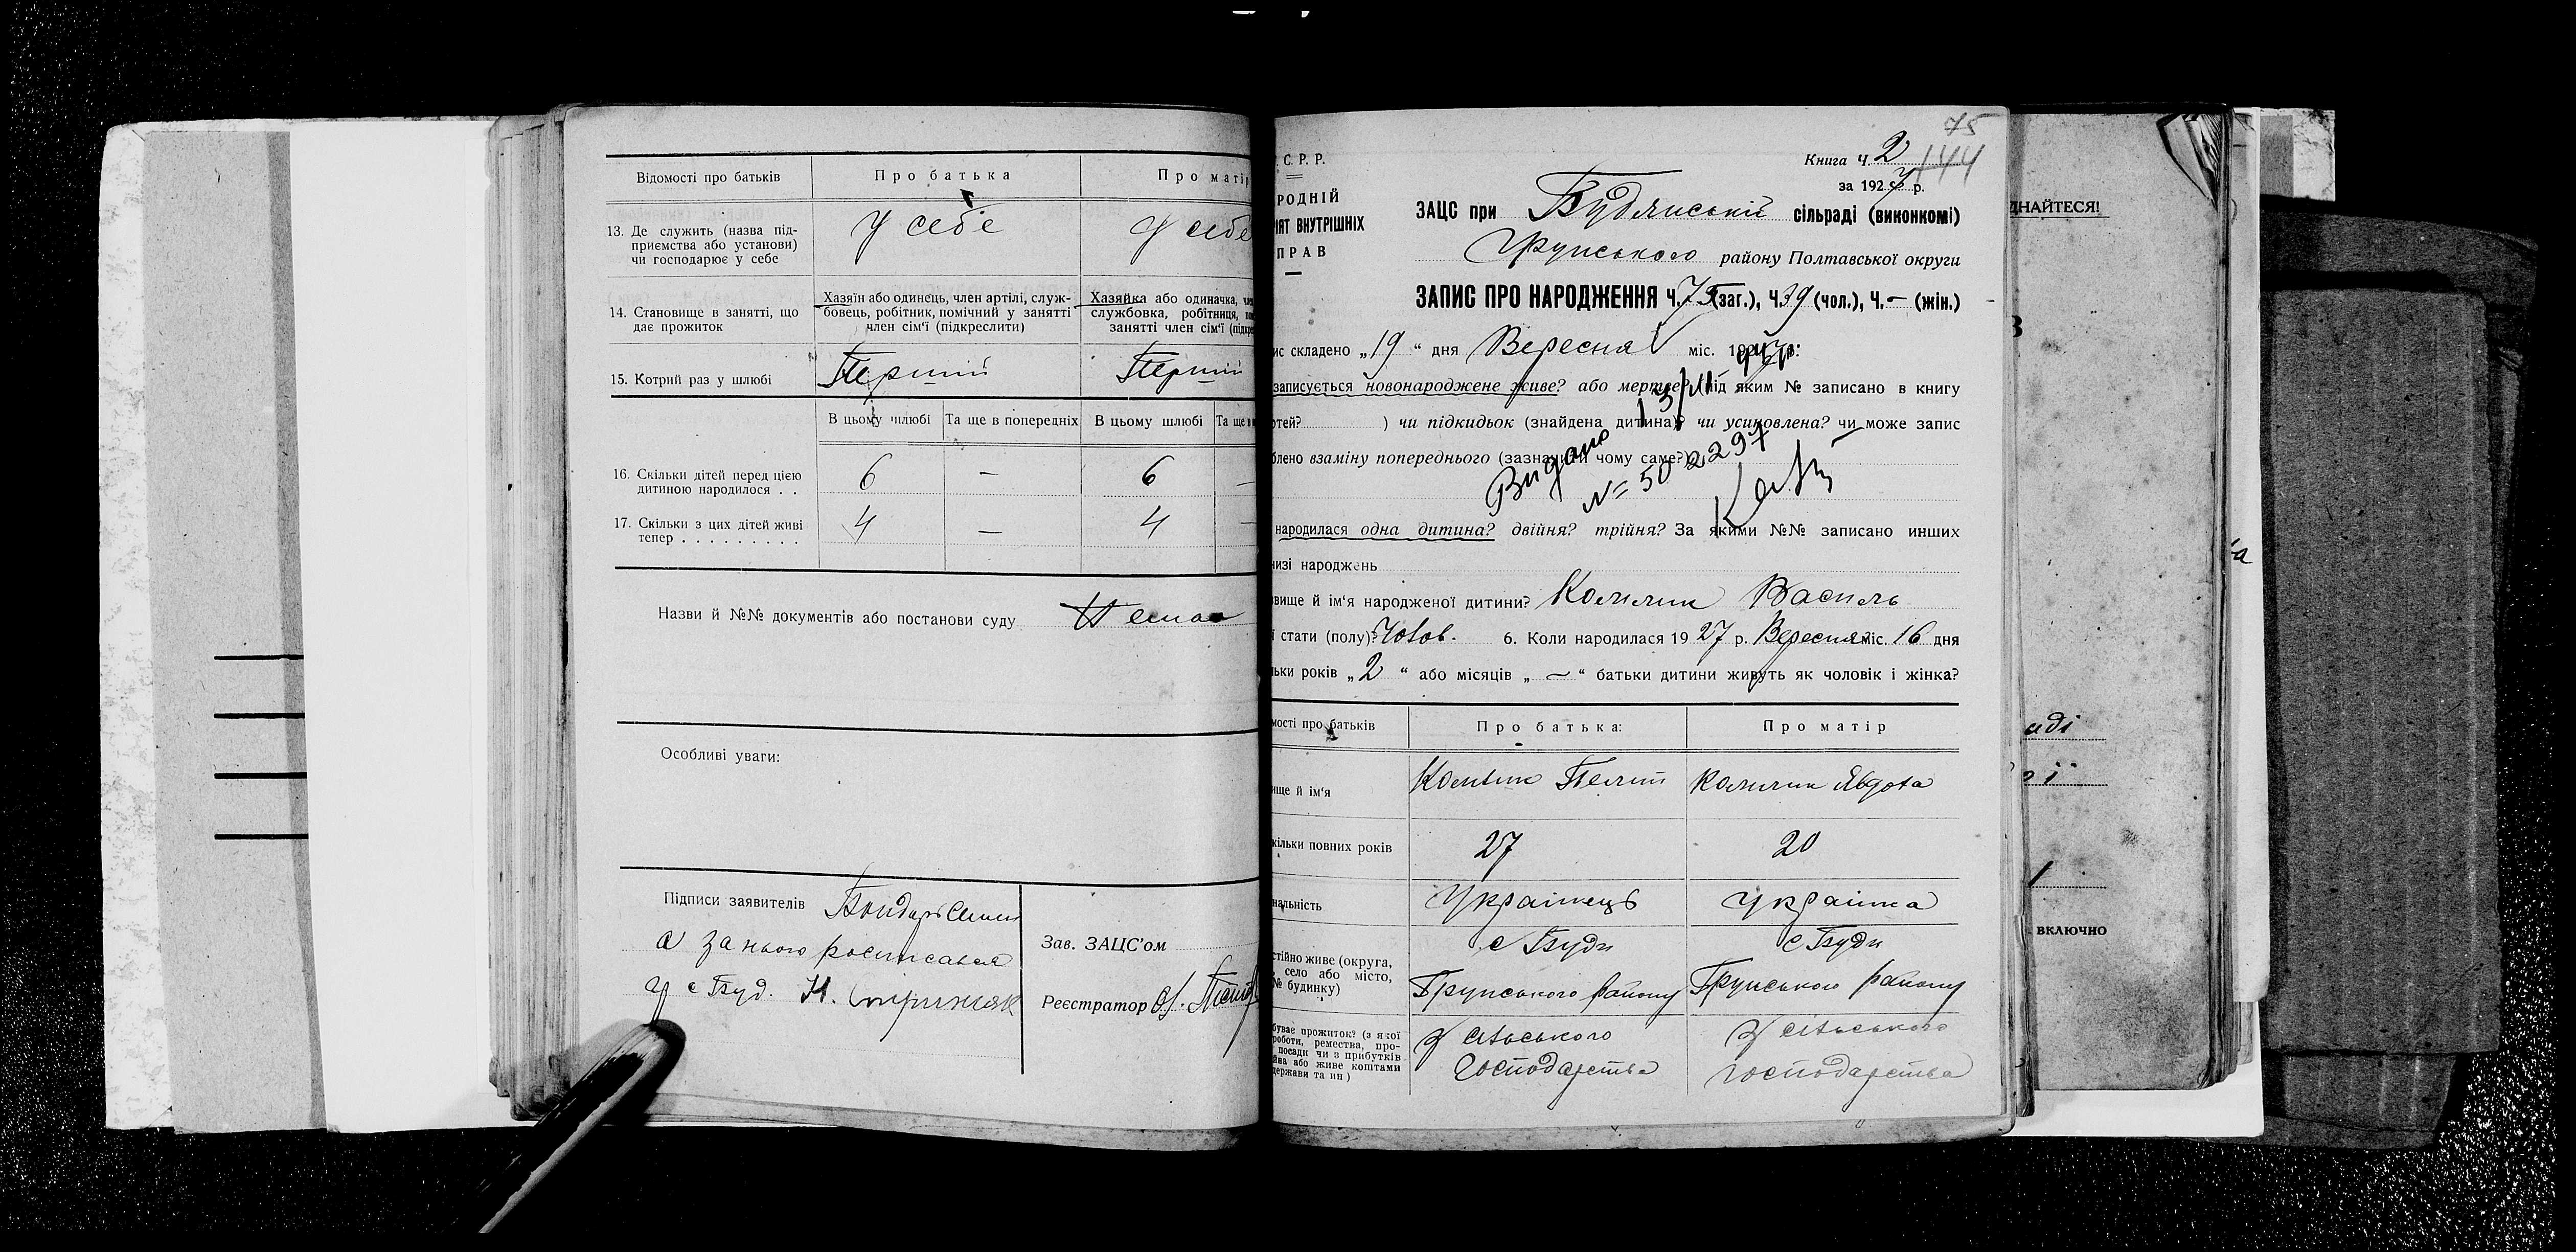 Відомості про батьків
Про батька
Про матір
13. Де служить (назва під-
приємства або установи)
чи господарює у себе
У себе
У себе
14. Становище в занятті, що
дає прожиток
Хазяїн або одинець, член артілі, служ-
бовець, робітник, помічний у занятті
член сім'ї (підкреслити)
Хазяйка або одиначка,
службовка, робітниця,
занятті член сім'ї
15. Котрий раз у шлюбі
Перший
Перший
В цьому шлюбі
Та ще в попередніх
В цьому шлюбі
Та ще
16. Скільки дітей перед цією
дитиною народилося . .
6
—
6
—
17. Скільки з цих дітей живі
тепер . . . . . . . . .
4
—
4
—
Назви й №№ документів або постанови суду
Немає
Особливі уваги:
Підписи заявителів Бондарь Семен
а за нього росписався
у с Буд. Н.
Зав. ЗАЦС'ом
Реєстратор
75
144
С. Р. Р.
РОДНІЙ
ІЯТ ВНУТРІШНІХ
ПРАВ
Книга Ч. 2
за 1927 р.
ЗАЦС при Будянській сільраді (виконкомі)
Грунського району Полтавської округи
ЗАПИС ПРО НАРОДЖЕННЯ Ч. 75 (заг.), Ч. 39 (чол.), Ч. — (жін.)
ис складено „19" дня Вересня міс. 1927 р:
записується новонароджене живе? або мертве? (під яким № записано в книгу
ртей? ) чи підкидьок (знайдена дитина)? чи усиновлена? чи може запис
блено взаміну попереднього (зазначити чому саме?)
Видано
№ 502297
народилася одна дитина? двійня? трійня? За якими №№ записано инших
изі народжень
звище й ім'я народженої дитини? Колилик Василь
ї стати (полу)? Чолов. 6. Коли народилася 1927 р. Вересня міс. 16 дня
льки років „2" або місяців „—" батьки дитини живуть як чоловік і жінка?
мості про батьків
Про батька:
Про матір
ище й ім'я
Колилик Пилип
Колилик Явдоха
кільки повних років
27
20
нальність
Українець
Українка
стійно живе (округа,
село або місто,
№ будинку)
с Буди
Грунського району
с Буди
Грунського району
буває прожиток? (з якої
роботи, ремества, про-
посади чи з прибутків
йва або живе коштами
держави та ин)
З сільського
господарства
З сільського
господарства
ДНАЙТЕСЯ!
аді
ої
включно